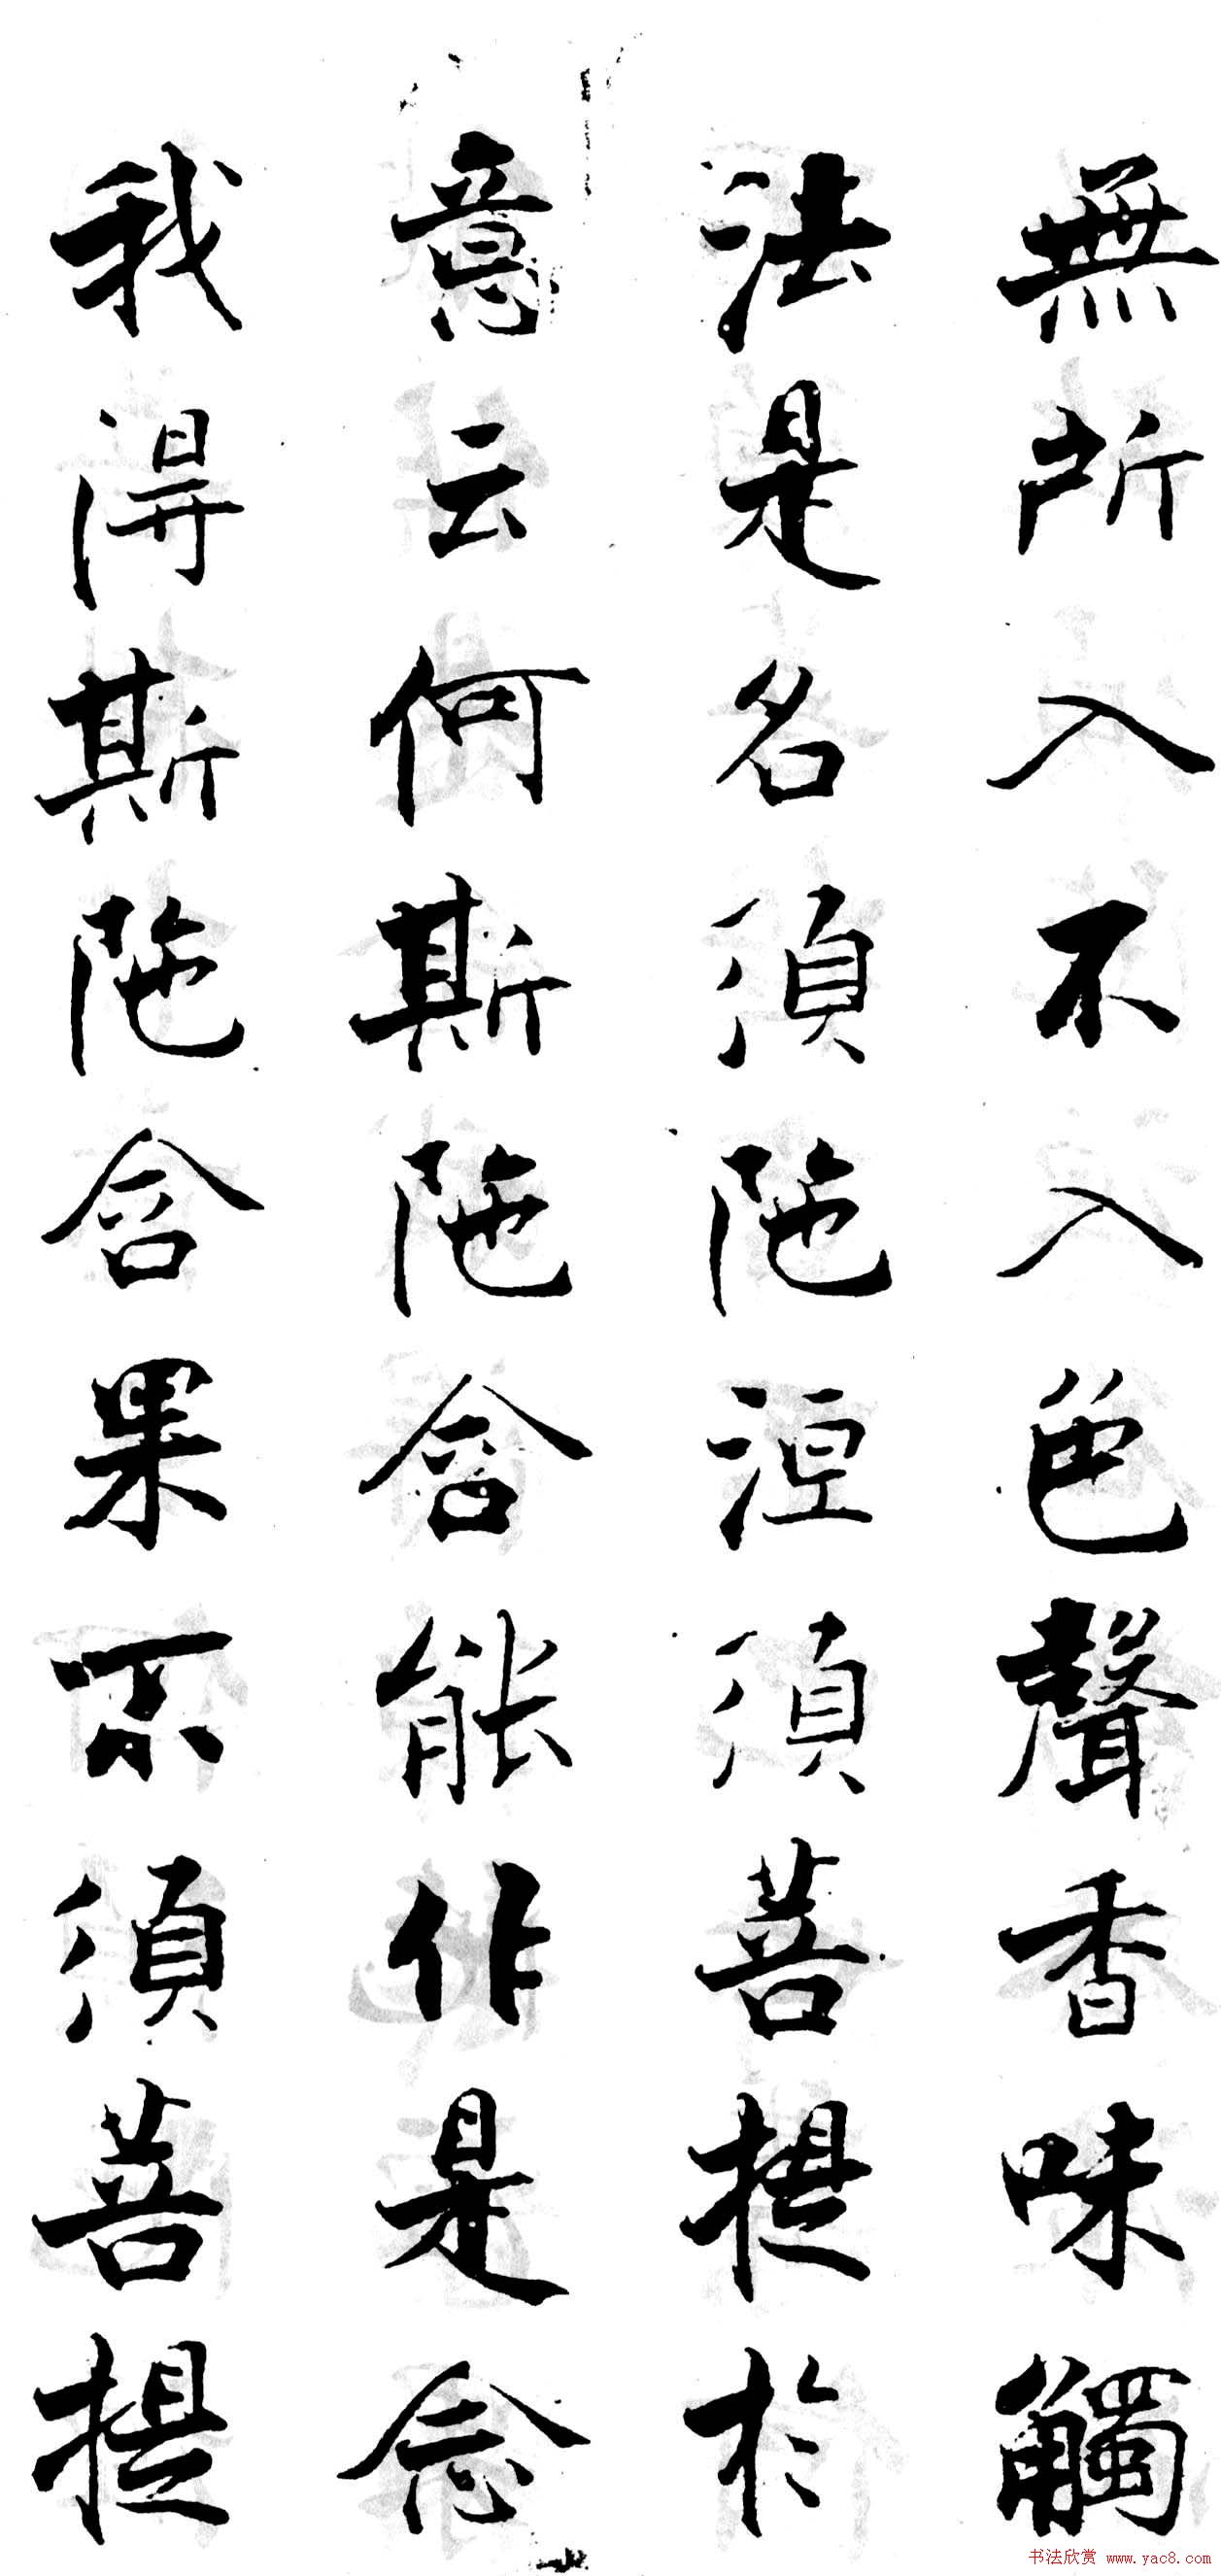 無所入不入色聲香味觸
法是名須陁洹須菩提於
意云何斯陁含能作是念
我得斯陁含果不須菩提
书法欣赏 www.yac8.com